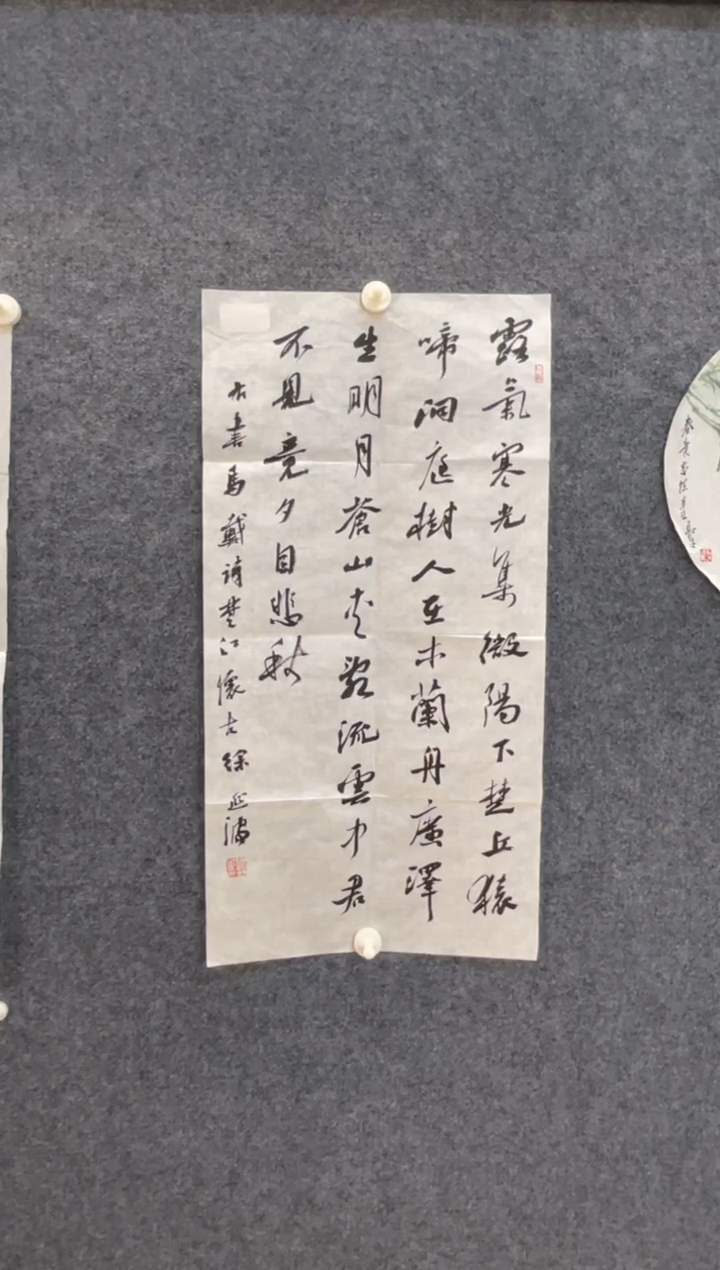 露氣寒光集微陽下楚丘猿
啼洞庭樹人在木蘭舟廣澤
生明月蒼山夾亂流雲中君
不見竟夕自悲秋
右書馬戴詩楚江懷古徐延波